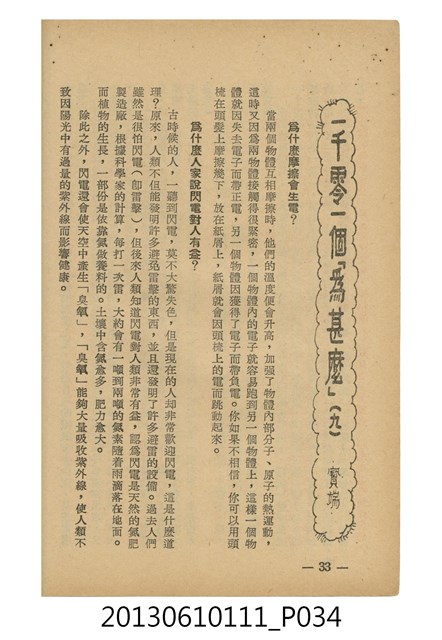 一千零一個「為甚麼」(九)
寶端
為什麼摩擦會生電?
當兩個物體互相摩擦時,他們的溫度便會升高,加强了物體內部分子、原子的熱運動,
這時又因為兩物體接觸得很緊密,一個物體內的電子就容易跑到另一個物體上,這樣一個物
體就因失去電子而帶正電,另一個物體因獲得了電子而帶負電。你如果不相信,你可以用頭
梳在頭髮上摩擦幾下,放在紙屑上,紙屑就會因頭梳上的電而跳動起來。
為什麼人家說閃電對人有益?
古時候的人,一聽到閃電,莫不大驚失色,但是現在的人却非常歡迎閃電,這是什麼道
理?原來,人類不但能發明許多避免雷擊的東西,並且還發明了許多避雷的設備。過去人們
雖然是很怕閃電(卽雷擊),但後來人類知道閃電對人類非常有益,認為閃電是天然的氮肥
製造廠,根據科學家的計算,每打一次雷,大約會有一噸到兩噸的氮素隨着雨滴落在地面。
而植物的生長,一部份是依靠氮做養料的。土壤中含氮愈多,肥力愈大。
除此之外,閃電還會使天空中產生「臭氧」,「臭氧」能夠大量吸收紫外線,使人類不
致因陽光中有過量的紫外線而影響健康。
— 33 —
20130610111_P034